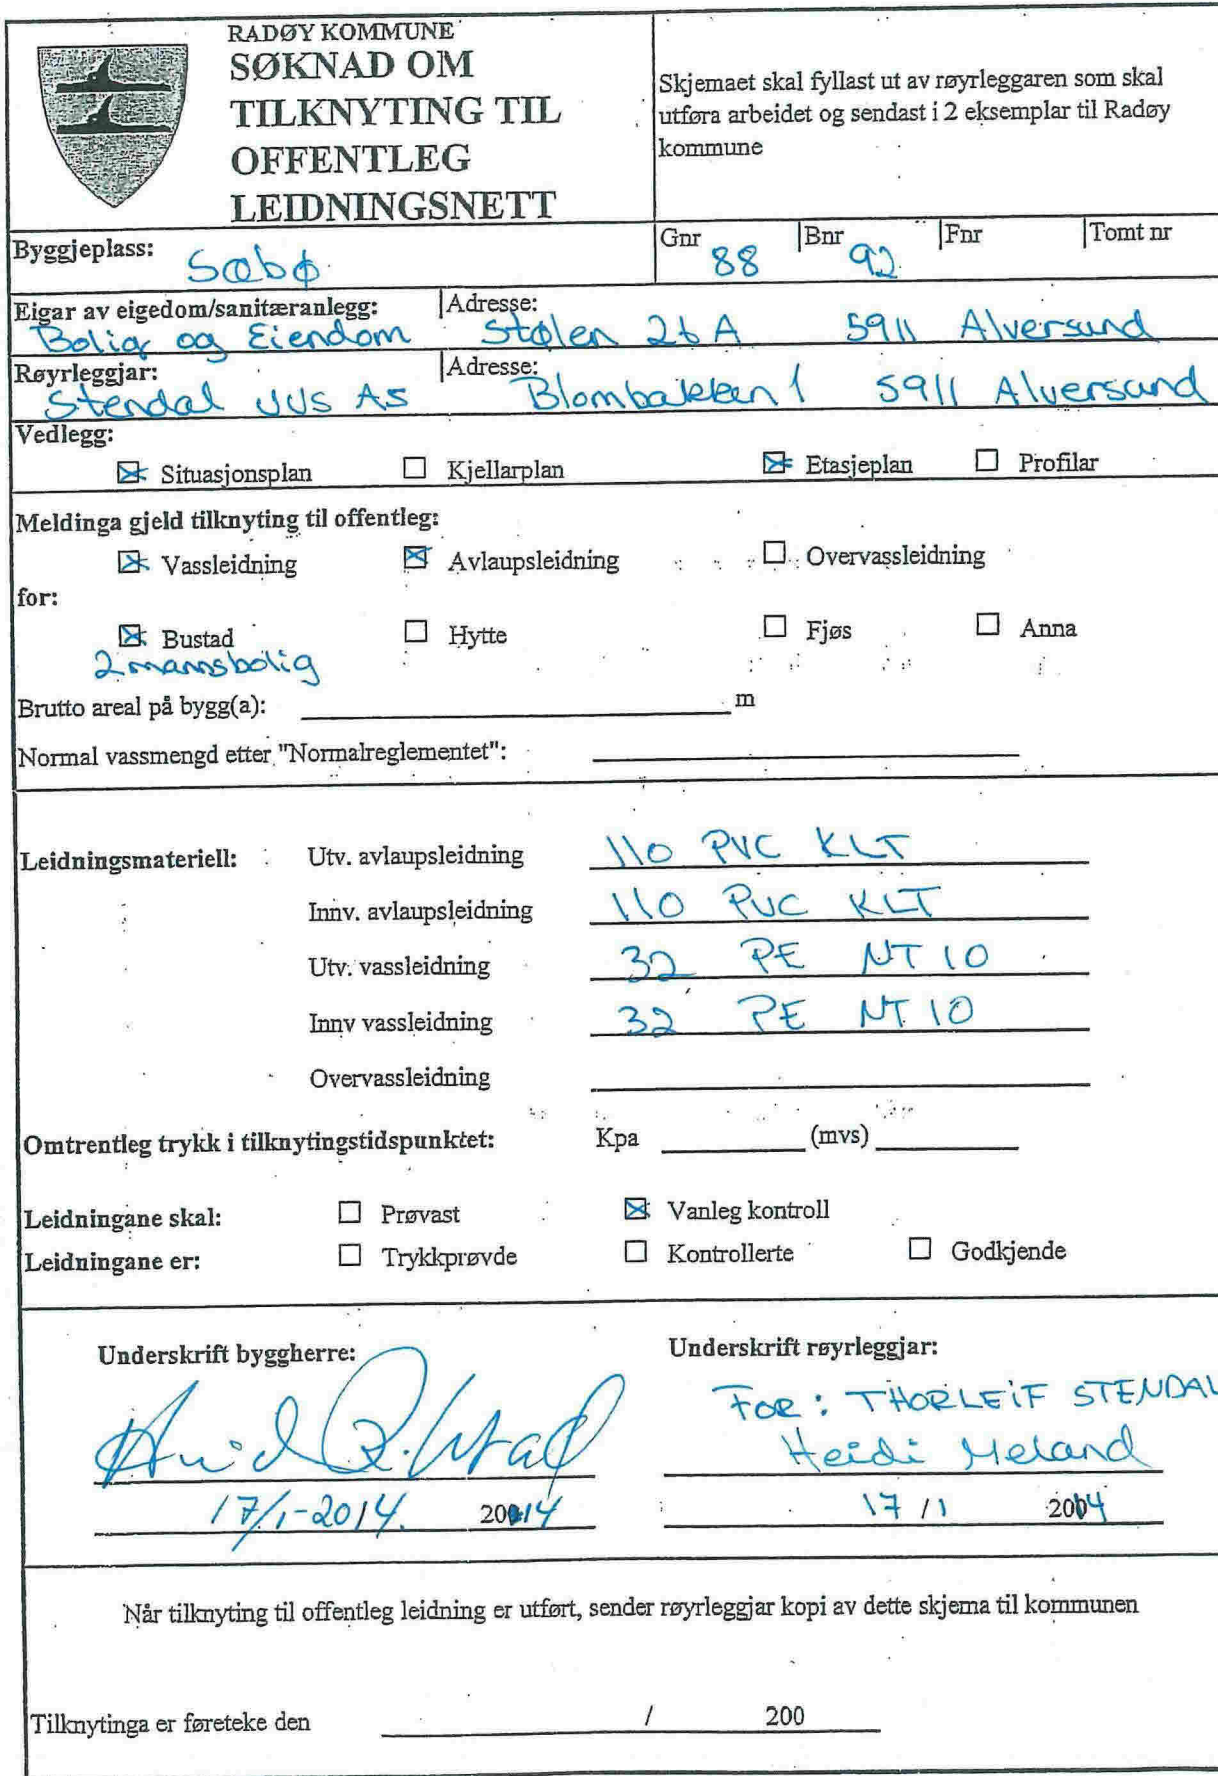 RADØY KOMMUNE
SØKNAD OM
TILKNYTING TIL
OFFENTLEG
LEIDNINGSNETT
Skjemaet skal fyllast ut av røyrleggaren som skal
utføra arbeidet og sendast i 2 eksemplar til Radøy
kommune
Byggjeplass: Sæbø
Gnr 88 Bnr 92 Fnr Tomt nr
Eigar av eigedom/sanitæranlegg: Adresse:
Bolig og Eiendom Stølen 26 A 5911 Alversund
Røyrleggjar: Adresse:
Stendal VVS AS Blombakken 1 5911 Alversund
Vedlegg:
☒ Situasjonsplan ☐ Kjellarplan ☒ Etasjeplan ☐ Profilar
Meldinga gjeld tilknyting til offentleg:
☒ Vassleidning ☒ Avlaupsleidning ☐ Overvassleidning
for:
☒ Bustad ☐ Hytte ☐ Fjøs ☐ Anna
2 mannsbolig
Brutto areal på bygg(a): m
Normal vassmengd etter "Normalreglementet":
Leidningsmateriell: Utv. avlaupsleidning 110 PVC KLT
Innv. avlaupsleidning 110 PVC KLT
Utv. vassleidning 32 PE NT 10
Innv vassleidning 32 PE NT 10
Overvassleidning
Omtrentleg trykk i tilknytingstidspunktet: Kpa (mvs)
Leidningane skal: ☐ Prøvast ☒ Vanleg kontroll
Leidningane er: ☐ Trykkprøvde ☐ Kontrollerte ☐ Godkjende
Underskrift byggherre:
17/1-2014. 2014
Underskrift røyrleggjar:
FOR: THORLEIF STENDAL
Heidi Meland
17 / 1 2014
Når tilknyting til offentleg leidning er utført, sender røyrleggjar kopi av dette skjema til kommunen
Tilknytinga er føreteke den / 200